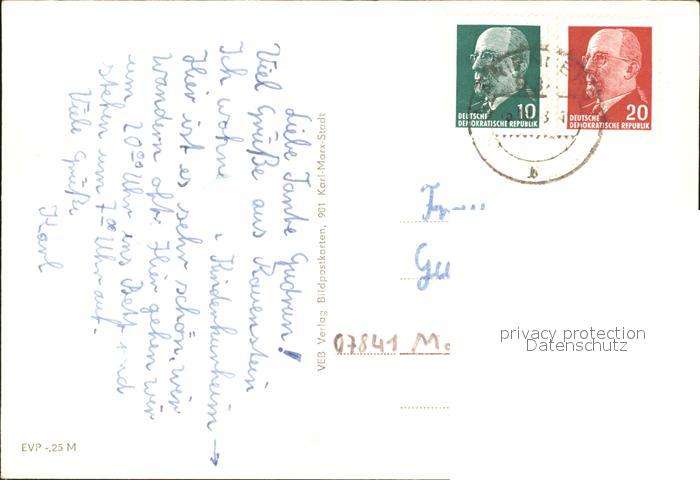 Liebe Tante Gudrun!
Viel Grüße aus Rauenstein
Ich wohne, Kinderkurheim →
Hier ist es sehr schön, wir
wandern oft. Hier gehen wir
um 20⁰⁰ Uhr ins Bett und
stehen um 7⁰⁰ Uhr auf.
Viele Grüße
Karl
EVP -,25 M
VEB Verlag Bildpostkarten, 901 Karl-Marx-Stadt
10
DEUTSCHE
DEMOKRATISCHE REPUBLIK
20
DEUTSCHE
DEMOKRATISCHE REPUBLIK
b
07841
privacy protection
Datenschutz